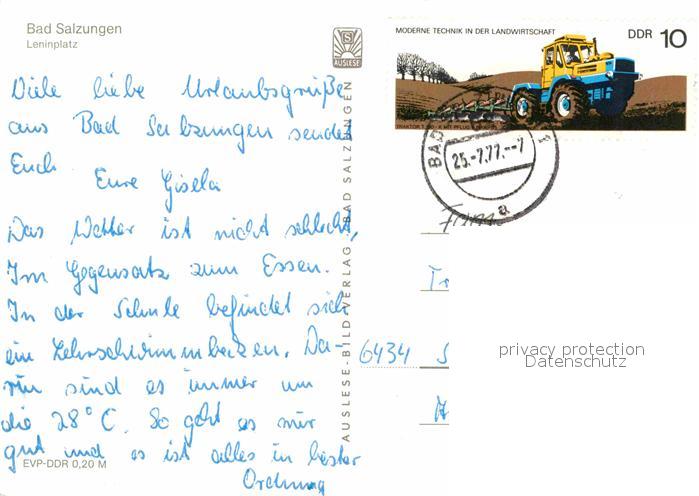 Bad Salzungen
Leninplatz
AUSLESE
MODERNE TECHNIK IN DER LANDWIRTSCHAFT
DDR 10
BAD
25.-7.77.--7
a
Viele liebe Urlaubsgrüße
aus Bad Salzungen sendet
Euch
Eure Gisela
Das Wetter ist nicht schlecht,
Im Gegensatz zum Essen.
In der Schule befindet sich
ein Lehrschwimmbecken. Da-
rin sind es immer um
die 28°C. So geht es mir
gut und es ist alles in bester
Ordnung
EVP-DDR 0,20 M
AUSLESE-BILD-VERLAG · BAD SALZUNGEN
6434 S
privacy protection
Datenschutz